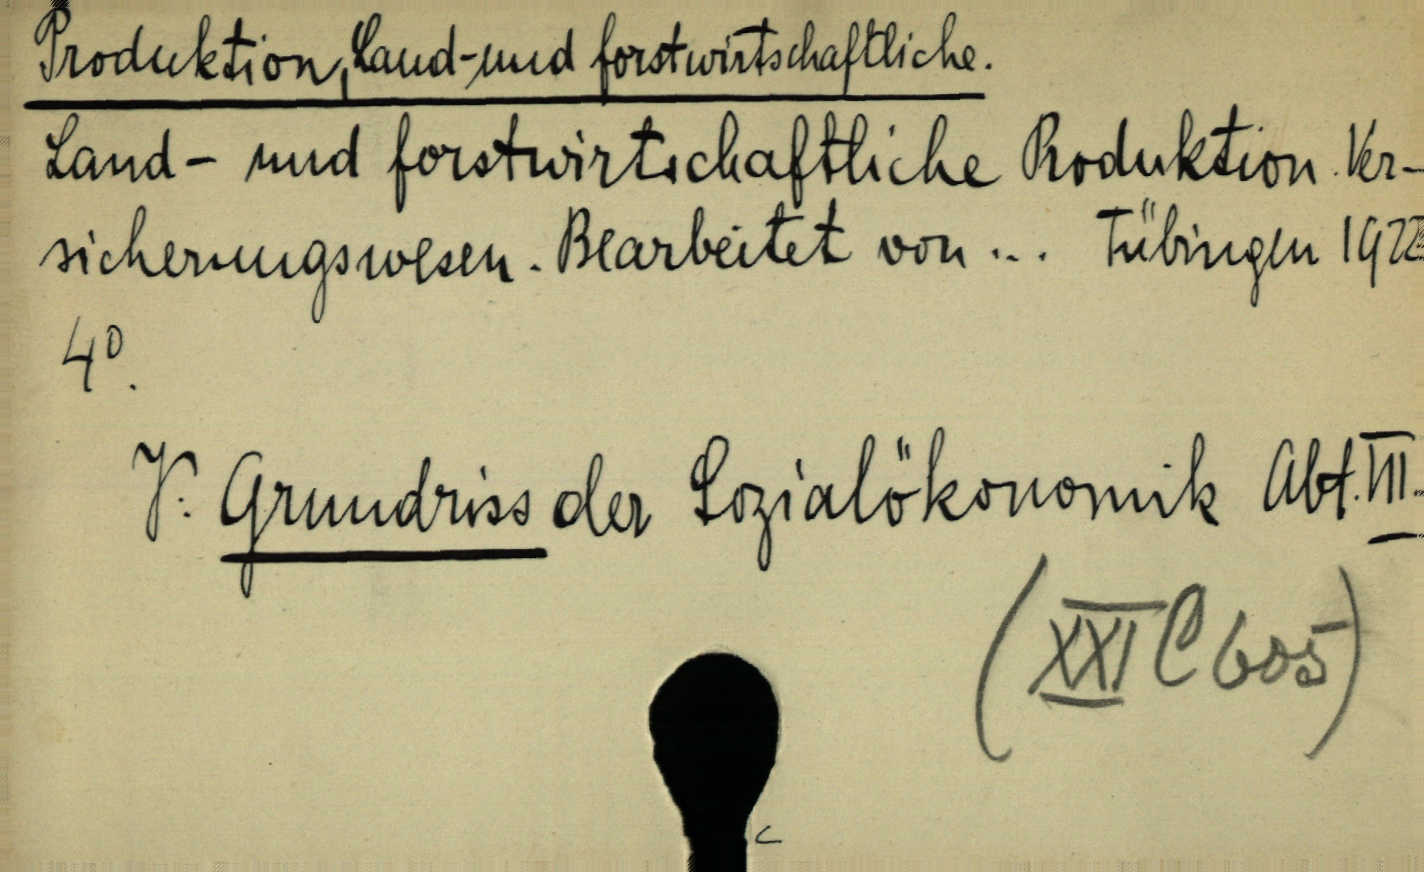 Produktion, Land- und forstwirtschaftliche.
Land- und forstwirtschaftliche Produktion. Ver-
sicherungswesen. Bearbeitet von ... Tübingen 1922
4°.
V. Grundriss der Sozialökonomik Abt. VII.
(XXI C 605)